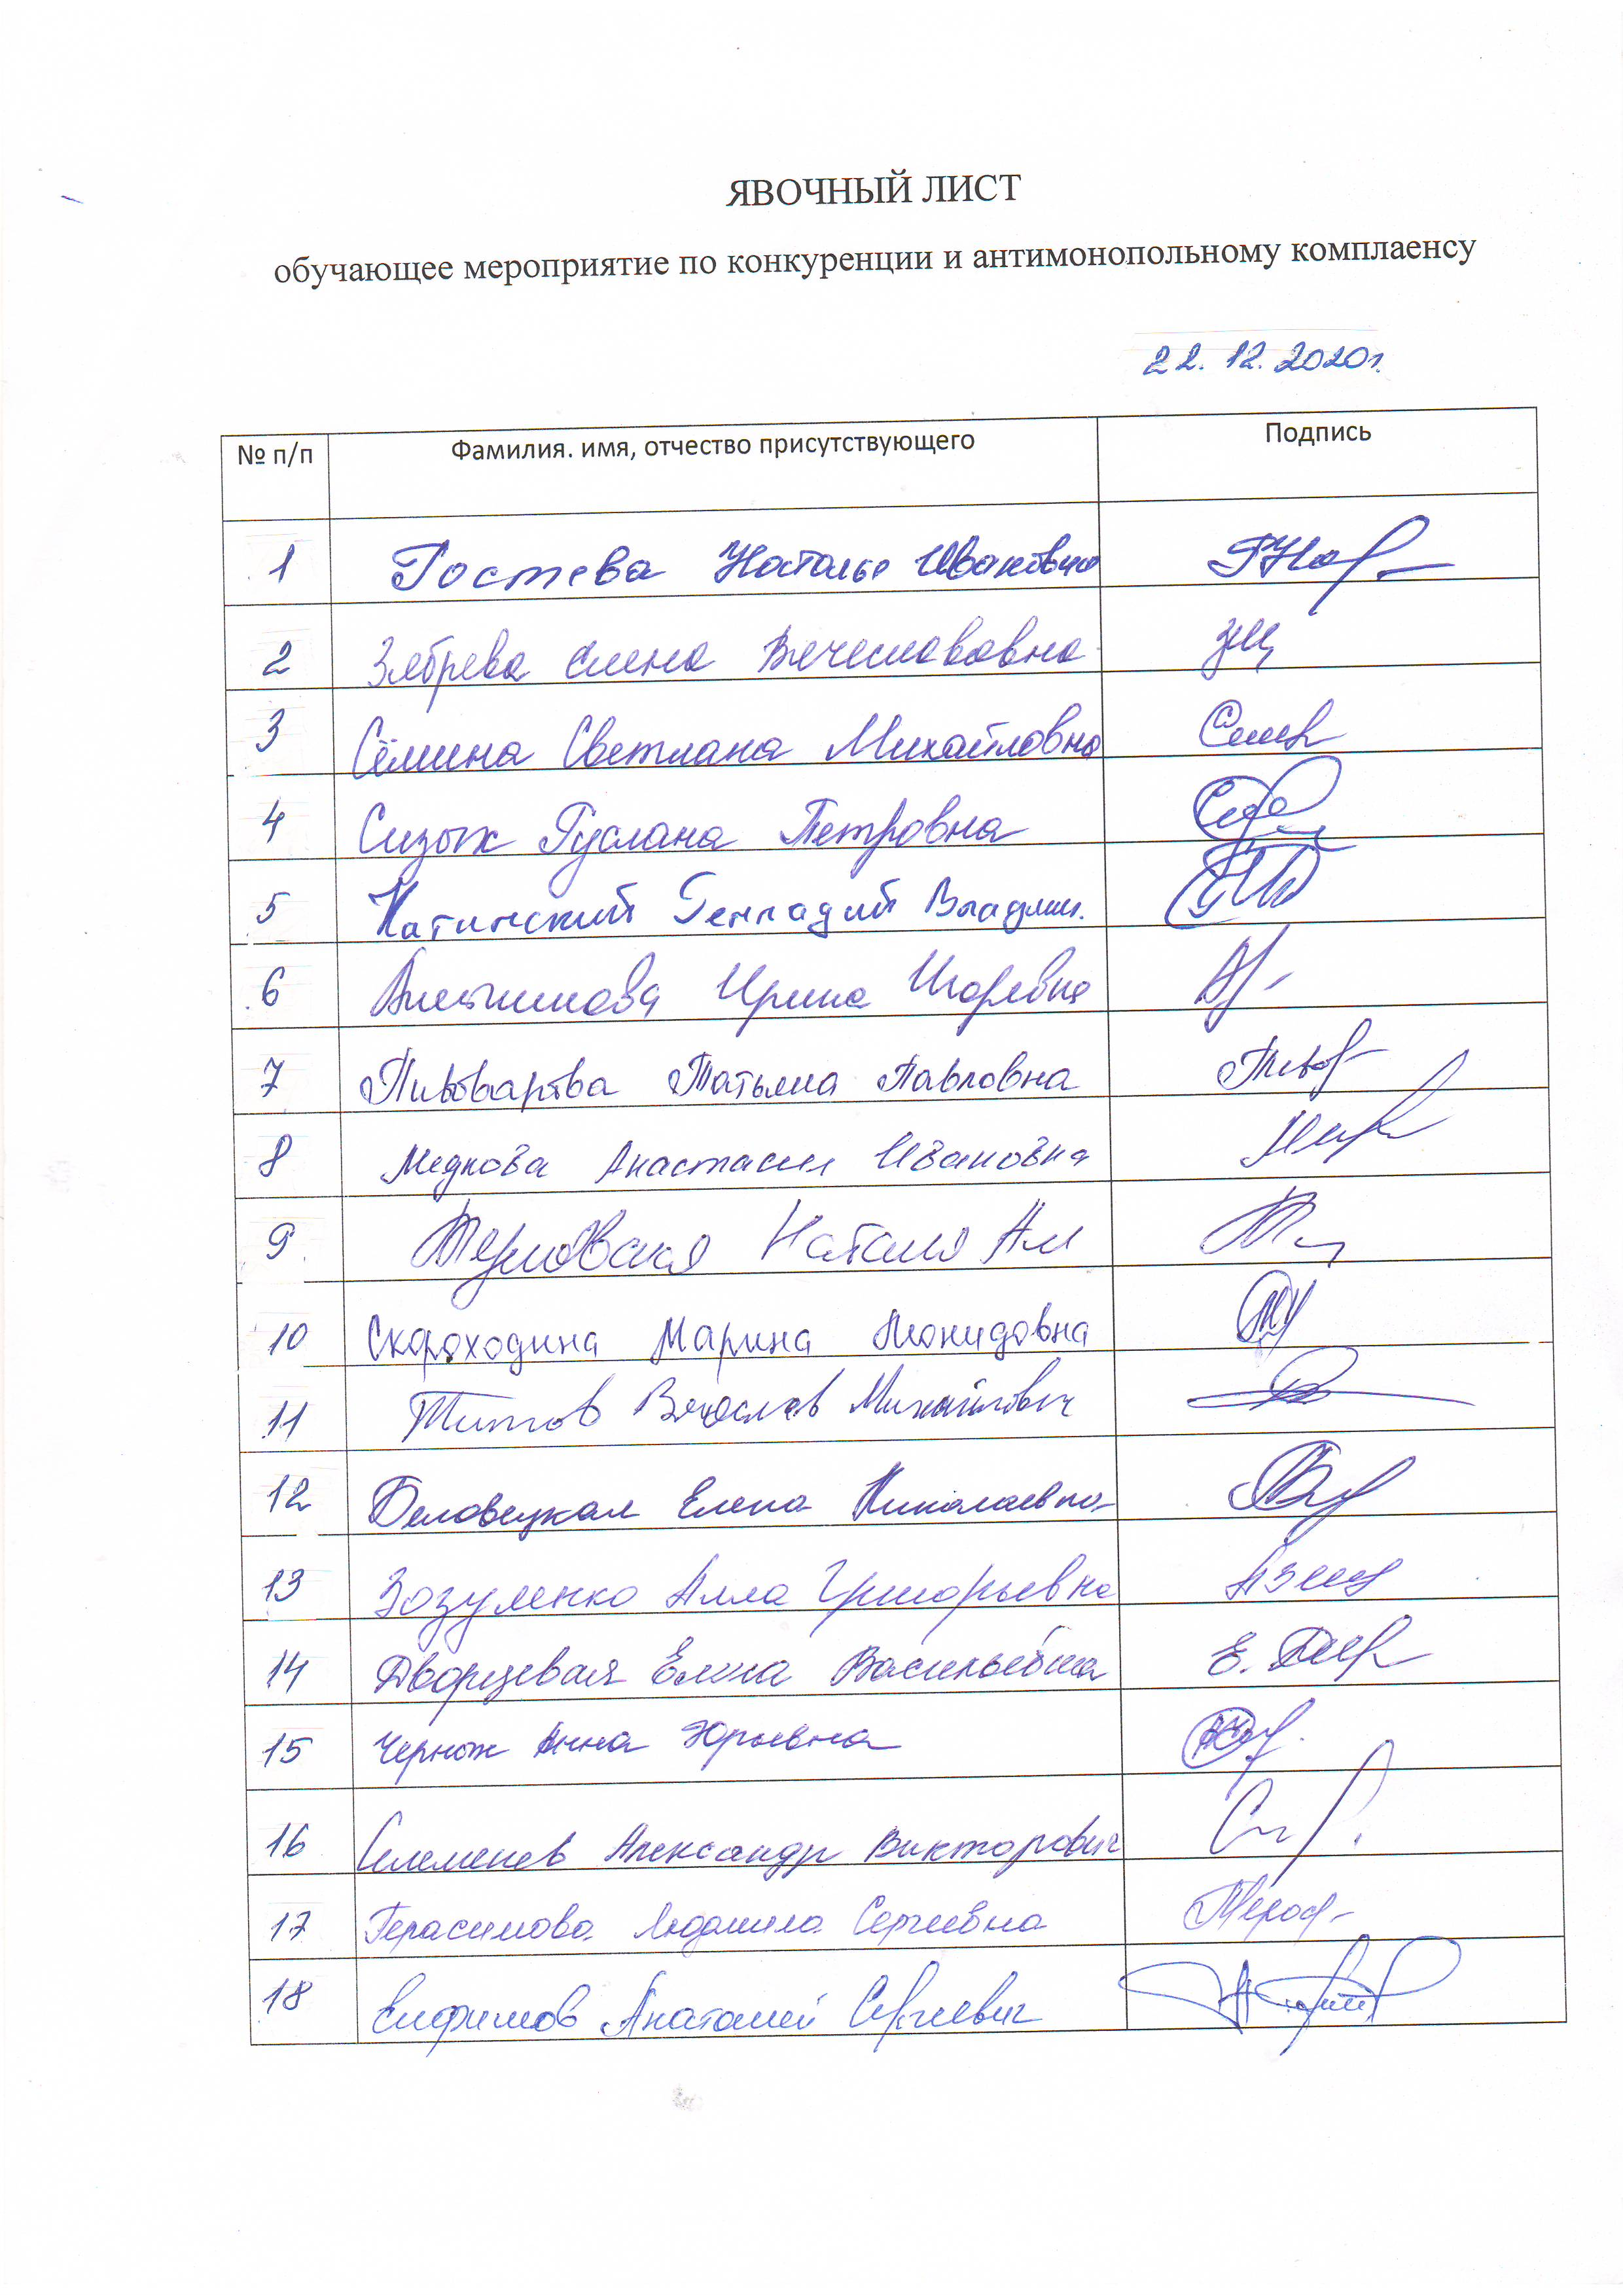 ЯВОЧНЫЙ ЛИСТ
обучающее мероприятие по конкуренции и антимонопольному комплаенсу
22.12.2020г.
№ п/п Фамилия. имя, отчество присутствующего Подпись
1 Гостева Наталья Ивановна
2 Зябрева Елена Вячеславовна
3 Сёмина Светлана Михайловна
4 Сизых Руслана Петровна
5 Катинский Геннадий Владим.
6 Ирина Игоревна
7 Пивоварова Татьяна Павловна
8 Меднова Анастасия Ивановна
9 Терновская Наталия Ал
10 Скороходина Марина Леонидовна
11 Титов Вячеслав Михайлович
12 Беловецкая Елена Николаевна
13 Зозуленко Алла Григорьевна
14 Дворцевая Елена Васильевна Е.
15 Черных Анна Юрьевна
16 Селеменев Александр Викторович
17 Герасимова Людмила Сергеевна
18 Елфимов Анатолий Сергеевич